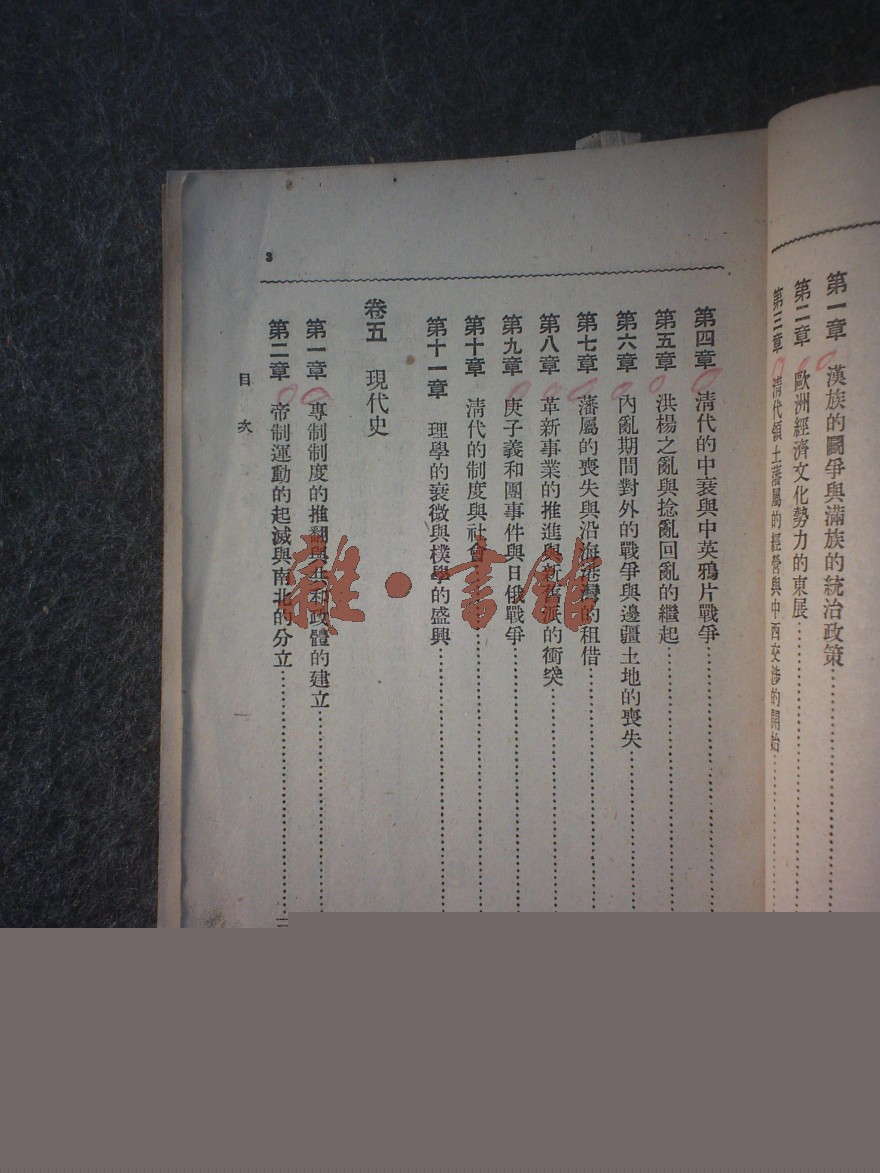 第一章　漢族的鬭爭與滿族的統治政策
第二章　歐洲經濟文化勢力的東展
第三章　清代領土藩屬的經營與中西交涉的開始
第四章　清代的中衰與中英鴉片戰爭
第五章　洪楊之亂與捻亂回亂的繼起
第六章　內亂期間對外的戰爭與邊疆土地的喪失
第七章　藩屬的喪失與沿海港灣的租借
第八章　革新事業的推進與新舊派的衝突
第九章　庚子義和團事件與日俄戰爭
第十章　清代的制度與社會
第十一章　理學的衰微與樸學的盛興
卷五　現代史
第一章　專制制度的推翻與共和政體的建立
第二章　帝制運動的起滅與南北的分立
目次
3
雜·書館